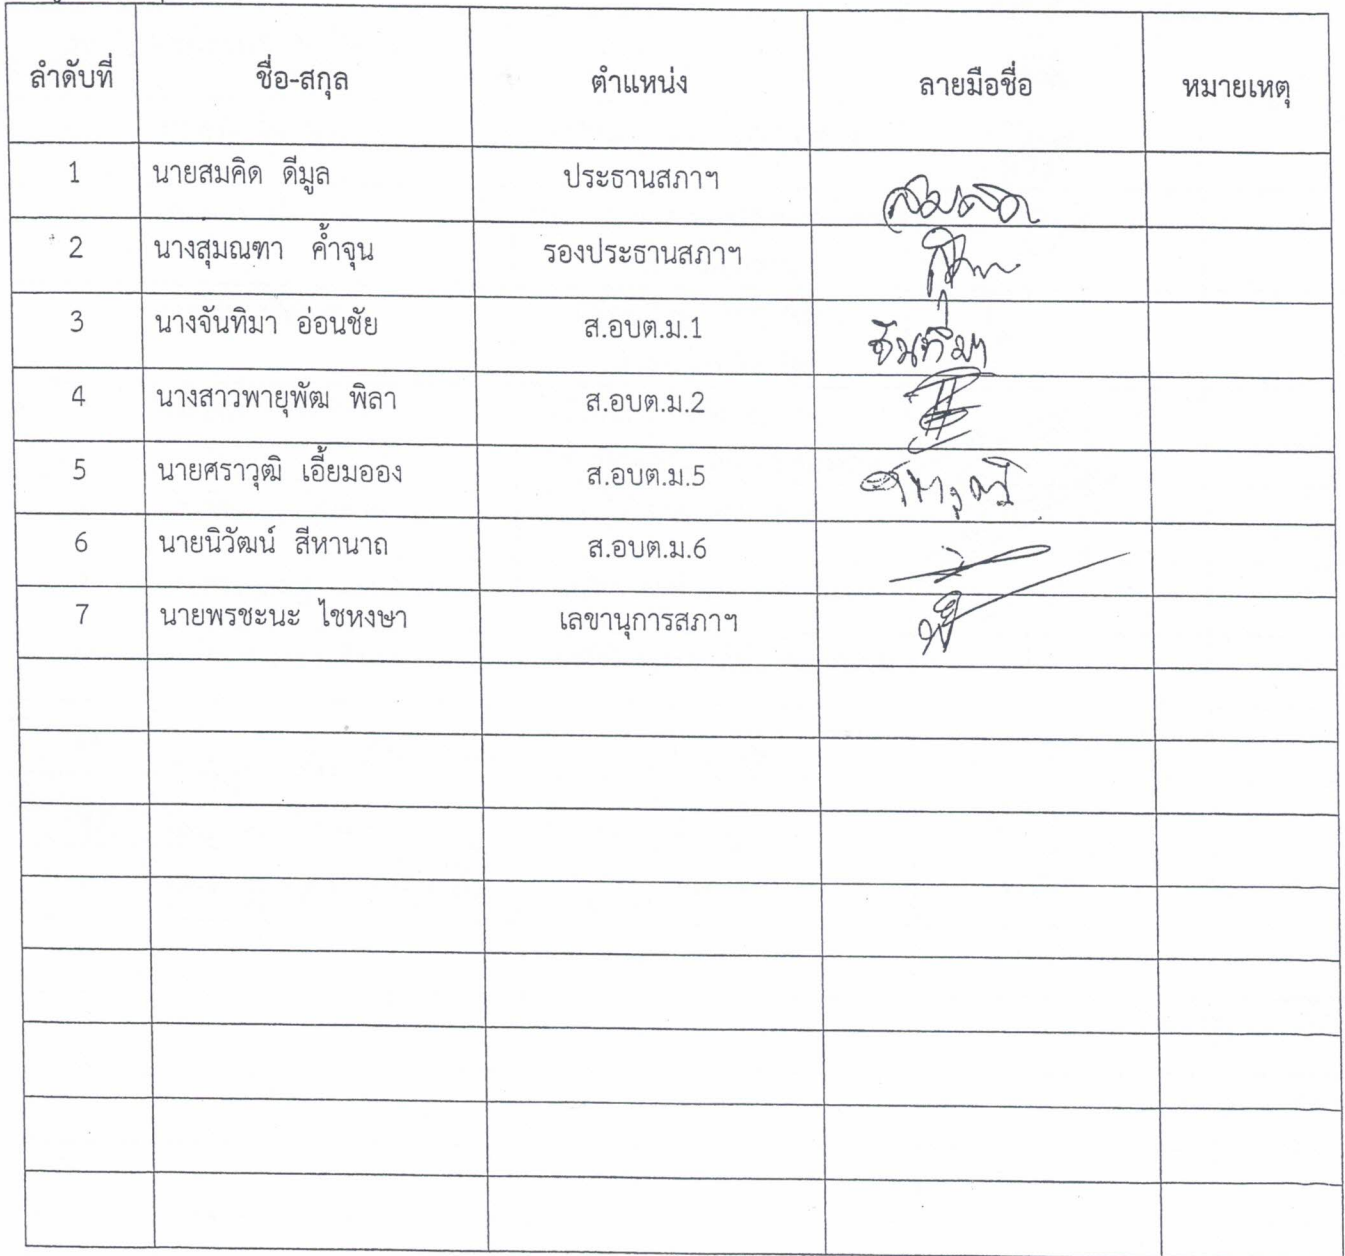 ลำดับที่ ชื่อ-สกุล ตำแหน่ง ลายมือชื่อ หมายเหตุ
1 นายสมคิด ดีมูล ประธานสภาฯ
2 นางสุมณฑา ค้ำจุน รองประธานสภาฯ
3 นางจันทิมา อ่อนชัย ส.อบต.ม.1 จันทิมา
4 นางสาวพายุพัฒ พิลา ส.อบต.ม.2
5 นายศราวุฒิ เอี้ยมออง ส.อบต.ม.5
6 นายนิวัฒน์ สีหานาถ ส.อบต.ม.6
7 นายพรชะนะ ไชหงษา เลขานุการสภาฯ